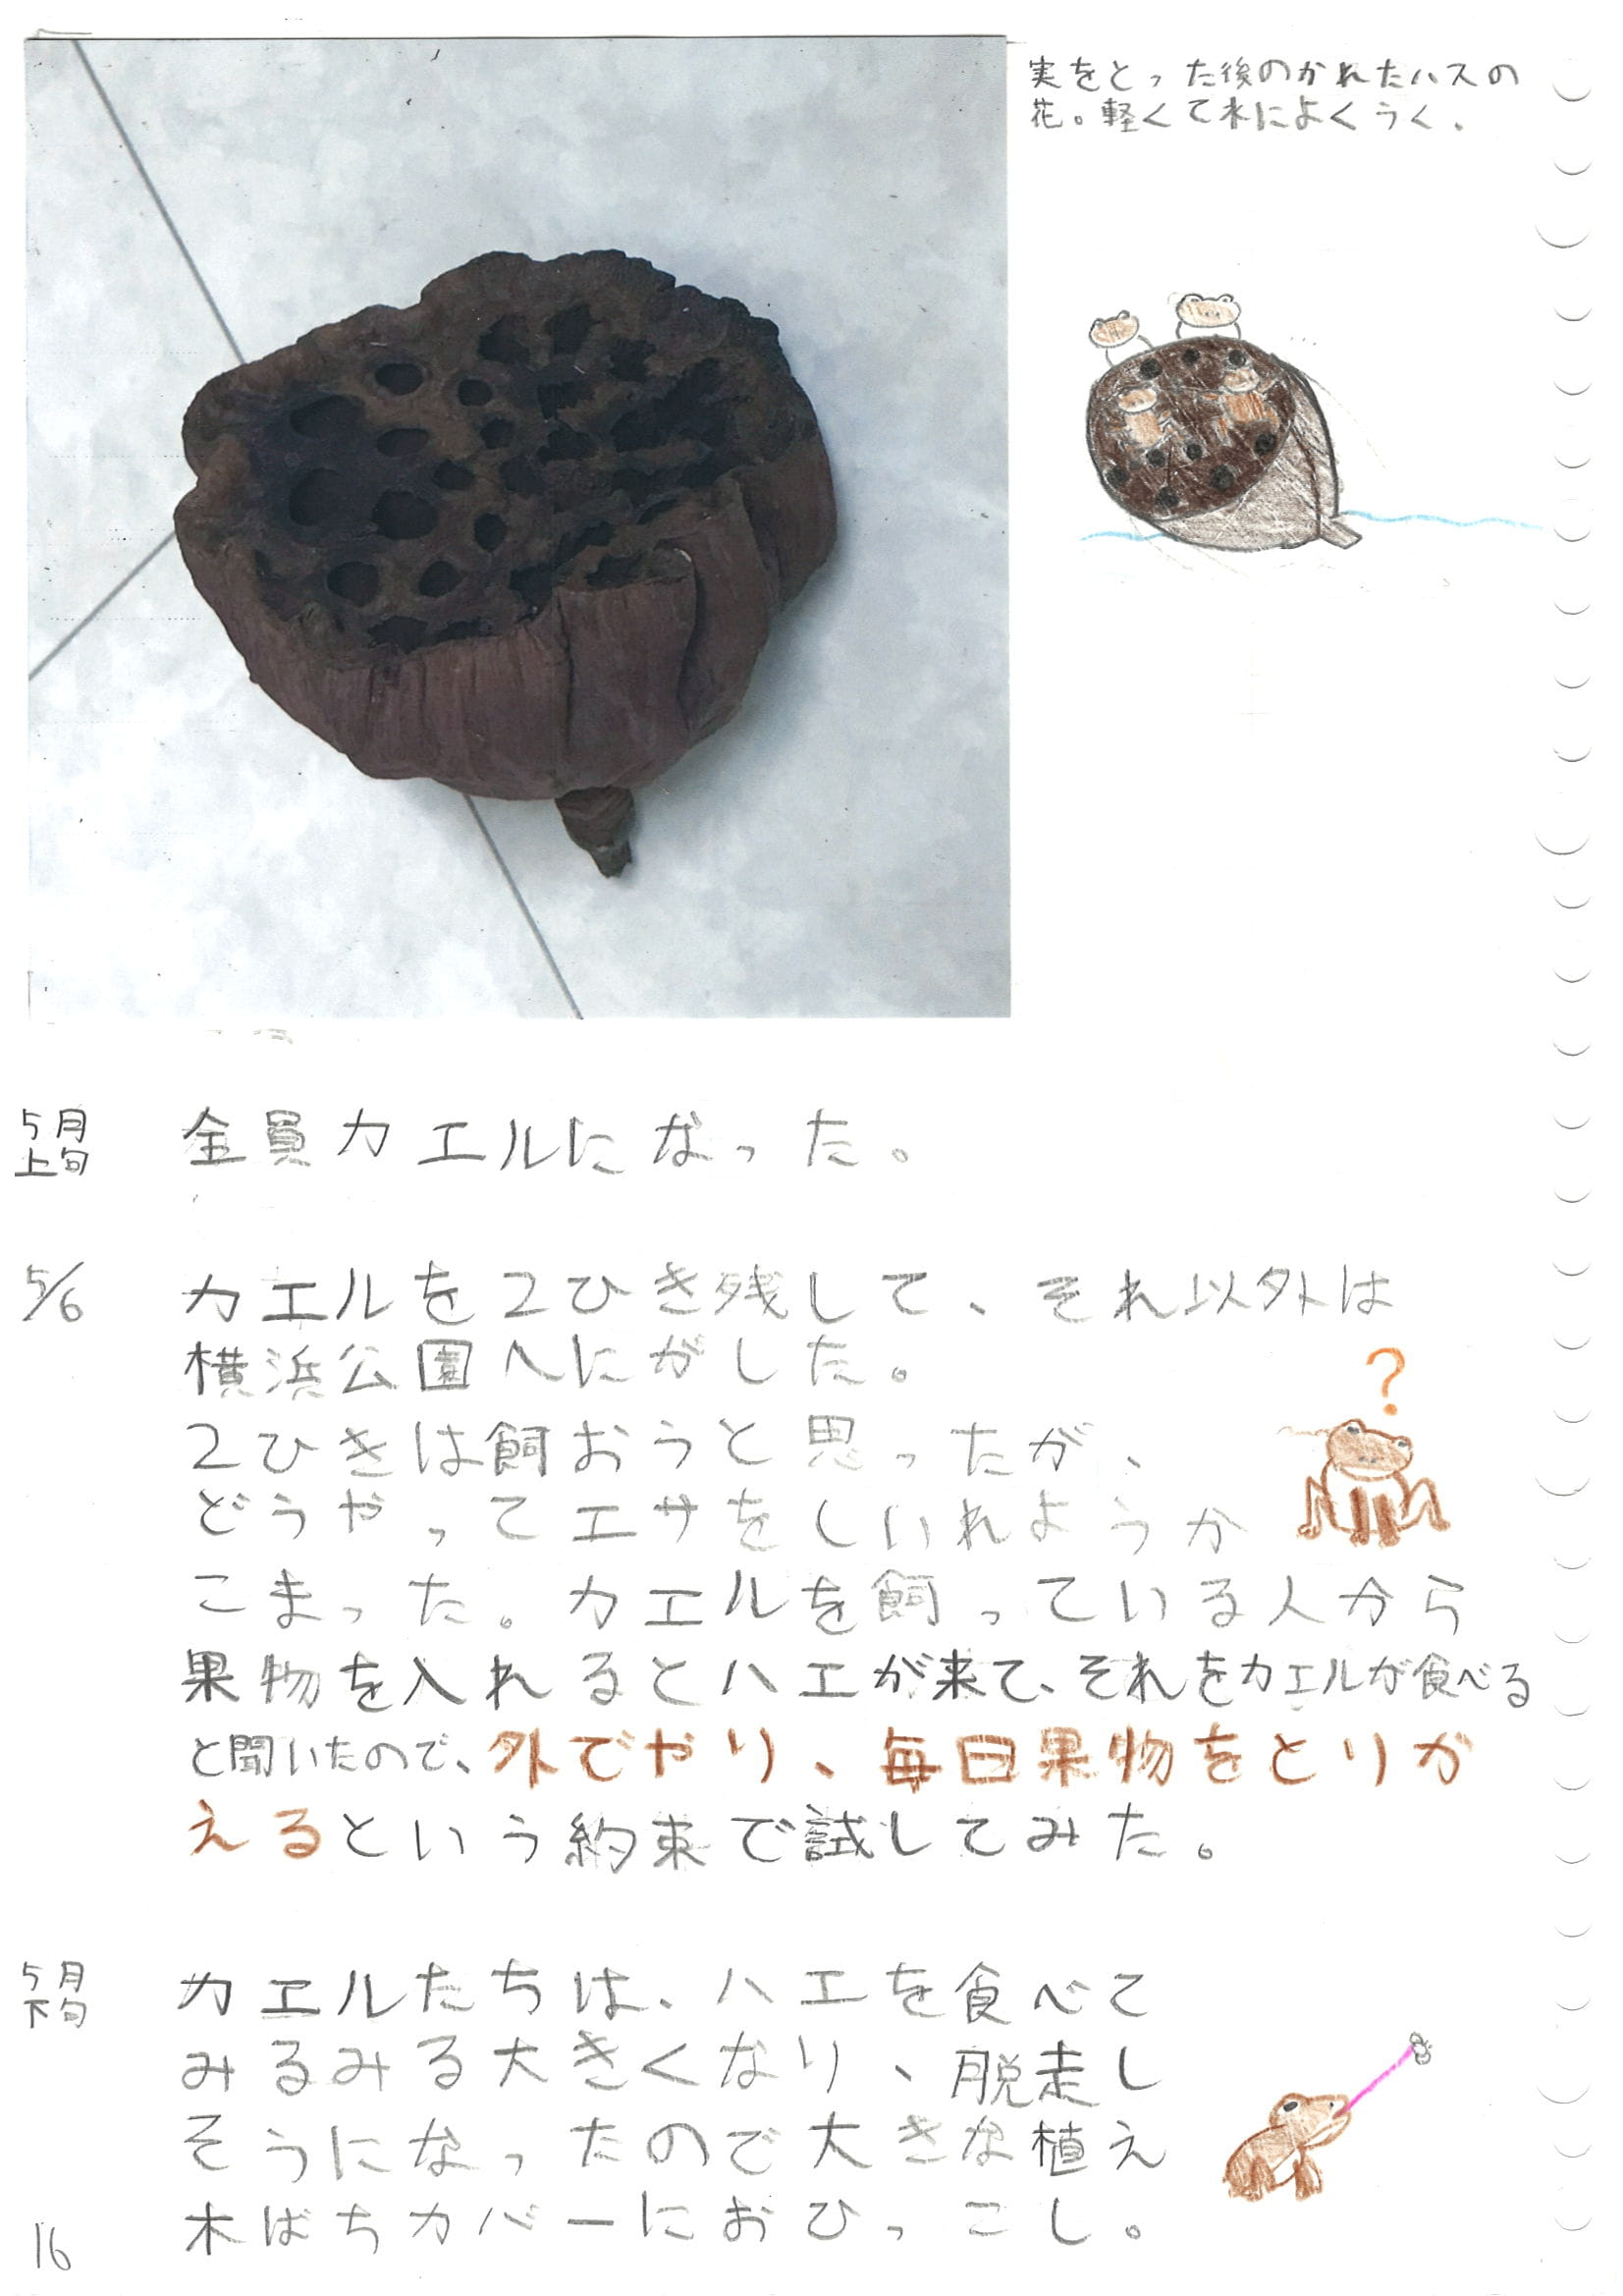 実をとった後のかれたハスの
花。軽くて水によくうく。
5月
上旬
全員カエルになった。
5/6
カエルを2ひき残して、それ以外は
横浜公園へにがした。
2ひきは飼おうと思ったが、
どうやってエサをしいれようか
こまった。カエルを飼っている人から
果物を入れるとハエが来て、それをカエルが食べる
と聞いたので、外でやり、毎日果物をとりが
えるという約束で試してみた。
?
5月
下旬
カエルたちは、ハエを食べて
みるみる大きくなり、脱走し
そうになったので大きな植え
木ばちカバーにおひっこし。
16